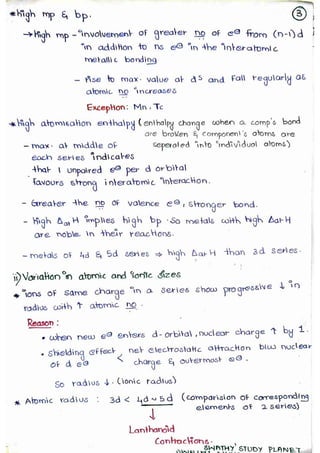 * High mp & bp. ③
→ High mp - "involvement of greater no of e⊖ from (n-1)d
in addition to ns e⊖ in the interatomic
metallic bonding
- Rise to max. value at d5 and fall regularly as
atomic no increases
Exception: Mn, Tc
* High atomisation enthalpy (enthalpy change when a comp's bond
are broken & component's atoms are
- max. at middle of seperated into individual atoms)
each series indicates
that 1 unpaired e⊖ per d orbital
favours strong interatomic interaction.
- Greater the no of valence e⊖, stronger bond.
- High ΔatH implies high bp. So metals with high ΔatH
are noble in their reactions.
- metals of 4d & 5d series ⇒ high ΔatH than 3d series.
ii) Variation in atomic and ionic sizes
* ions of same charge in a series show progressive ↓ in
radius with ↑ atomic no.
Reason:
• when new e⊖ enters d-orbital, nuclear charge ↑ by 1.
• shielding effect < net electrostatic attraction b/w nuclear
of d e⊖ charge & outermost e⊖.
So radius ↓. (ionic radius)
* Atomic radius : 3d < 4d ~ 5d (comparision of corresponding
↓ elements of 2 series)
Lanthanoid
Contractions.
SWATHY'STUDY PLANET